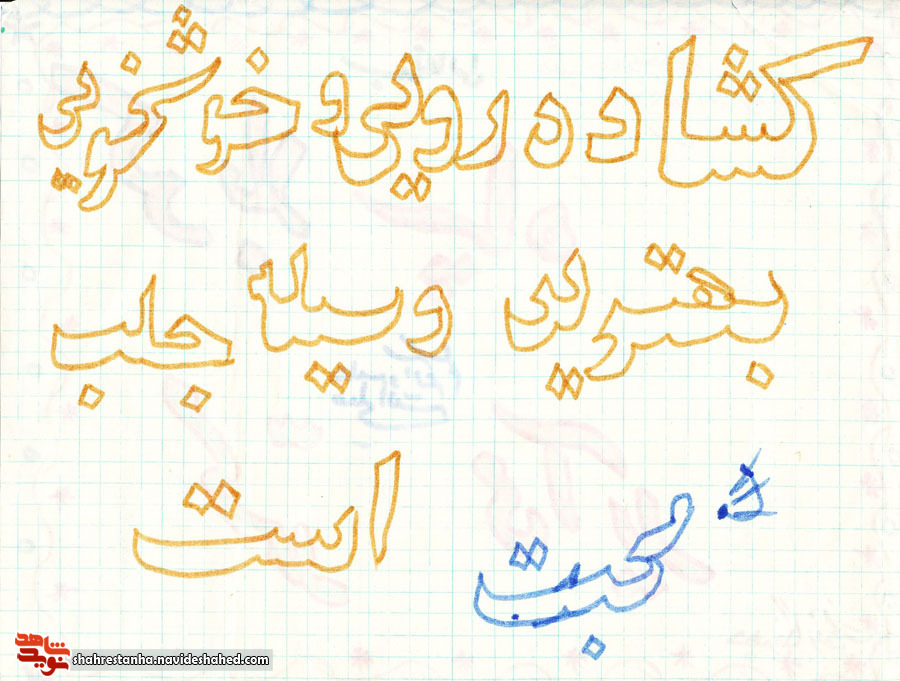 کشاده رویی و خوشخویی
بهترین وسیله جلب
محبت است
نوید شاهد
shahrestanha.navideshahed.com